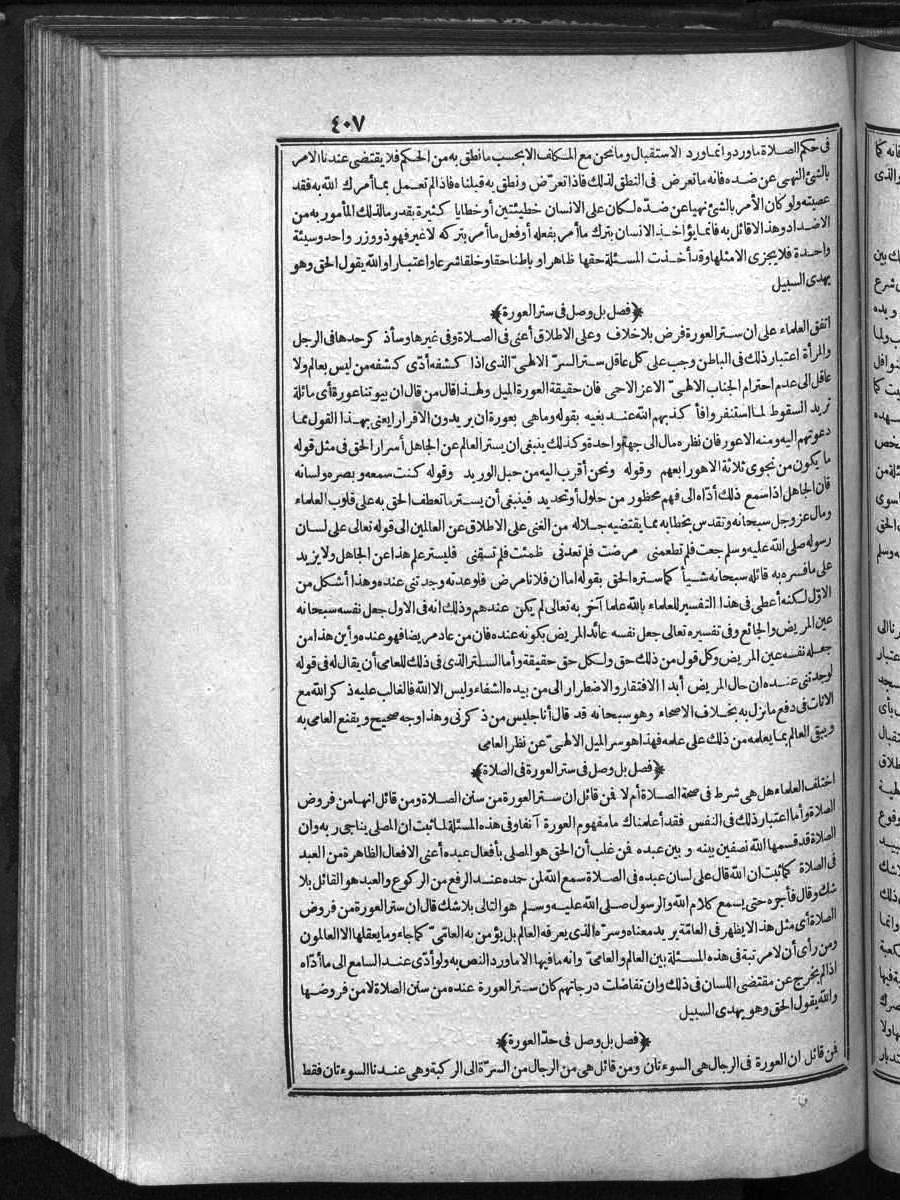 ٤٠٧
فى حكم الصلاة ماورد وانما ورد الاستقبال ومانحن مع المكلف الا بحسب مانطق به من الحكم فلا يقتضى عندنا الامر
بالشئ النهى عن ضده فانه ما تعرض فى النطق لذلك فاذا تعرض ونطق به قبلناه فاذا لم تعمل بما أمرك الله به فقد
عصيته ولو كان الأمر بالشئ نهيا عن ضده لكان على الانسان خطيئتين أو خطايا كثيرة بقدر مالذلك المأمور به من
الاضداد وهذا لا قائل به فانما يؤاخذ الانسان بترك ما أمر بفعله أو فعل ما أمر بتركه لا غير فهو ذو وزر واحد وسيئة
واحدة فلا يجزى الا مثلها وقد أخذت المسئلة حقها ظاهرا وباطنا حقا وخلقا شرعا واعتبارا والله يقول الحق وهو
يهدى السبيل
﴿فصل بل وصل فى ستر العورة﴾
اتفق العلماء على ان ستر العورة فرض بلا خلاف وعلى الاطلاق أعنى فى الصلاة وفى غيرها وسأذكر حدها فى الرجل
والمرأة اعتبار ذلك فى الباطن وجب على كل عاقل ستر السر الالهى الذى اذا كشفه أدى كشفه من ليس بعالم ولا
عاقل الى عدم احترام الجناب الالهى الاعز الاحمى فان حقيقة العورة الميل ولهذا قال من قال ان بيوتنا عورة أى مائلة
تريد السقوط لما استنفروا فأكذبهم الله عند نبيه بقوله وماهى بعورة ان يريدون الا فرارا يعنى بهذا القول مما
دعوتهم اليه ومنه الاعور فان نظره مال الى جهة واحدة وكذلك ينبغى ان يستر العالم عن الجاهل أسرار الحق فى مثل قوله
ما يكون من نجوى ثلاثة الا هو رابعهم وقوله ونحن أقرب اليه من حبل الوريد وقوله كنت سمعه وبصره ولسانه
فان الجاهل اذا سمع ذلك أداه الى فهم محظور من حلول أو تحديد فينبغى أن يستر ما تعطف الحق به على قلوب العلماء
ومال عز وجل سبحانه وتقدس بخطابه مما يقتضيه جلاله من الغنى على الاطلاق عن العالمين الى قوله تعالى على لسان
رسوله صلى الله عليه وسلم جعت فلم تطعمنى مرضت فلم تعدنى ظمئت فلم تسقنى فليستر علم هذا عن الجاهل ولا يزيد
على ما فسره به قائله سبحانه شيأ كما ستره الحق بقوله اما ان فلانا مرض فلو عدته وجدتنى عنده وهذا أشكل من
الاول لكنه أعطى فى هذا التفسير للعلماء بالله علما آخر به تعالى لم يكن عندهم وذلك انه فى الاول جعل نفسه سبحانه
عين المريض والجائع وفى تفسيره تعالى جعل نفسه عائد المريض بكونه عنده فان من عاد مريضا فهو عنده وأين هذا من
جعله نفسه عين المريض وكل قول من ذلك حق ولكل حق حقيقة وأما الستر الذى فى ذلك للعامى أن يقال له فى قوله
لوجدتنى عنده ان حال المريض أبدا الافتقار والاضطرار الى من بيده الشفاء وليس الا الله فالغالب عليه ذكر الله مع
الانات فى دفع مانزل به بخلاف الاصحاء وهو سبحانه قد قال أنا جليس من ذكرنى وهذا وجه صحيح ويقنع العامى به
ويبقى العالم بما يعلمه من ذلك على علمه فهذا هو سر الميل الالهى عن نظر العامى
﴿فصل بل وصل فى ستر العورة فى الصلاة﴾
اختلف العلماء هل هى شرط فى صحة الصلاة أم لا فمن قائل ان ستر العورة من سنن الصلاة ومن قائل انها من فروض
الصلاة وأما اعتبار ذلك فى النفس فقد أعلمناك ما مفهوم العورة آنفا وفى هذه المسئلة لما ثبت ان المصلى يناجى ربه وان
الصلاة قد قسمها الله نصفين بينه وبين عبده فمن غلب أن الحق هو المصلى بأفعال عبده أعنى الافعال الظاهرة من العبد
فى الصلاة كما ثبت ان الله قال على لسان عبده فى الصلاة سمع الله لمن حمده عند الرفع من الركوع والعبد هو القائل بلا
شك وقال فأجره حتى يسمع كلام الله والرسول صلى الله عليه وسلم هو التالى بلا شك قال ان ستر العورة من فروض
الصلاة أى مثل هذا لا يظهر فى العامة يريد معناه وسره الذى يعرفه العالم بل يؤمن به العامى كما جاء وما يعقلها الا العالمون
ومن رأى أن لا مرتبة فى هذه المسئلة بين العالم والعامى وانه مافيها الا ماورد النص به ولو أدى عند السامع الى ما أداه
اذا لم يخرج عن مقتضى اللسان فى ذلك وان تفاضلت درجاتهم كان ستر العورة عنده من سنن الصلاة لا من فروضها
والله يقول الحق وهو يهدى السبيل
﴿فصل بل وصل فى حد العورة﴾
فمن قائل ان العورة فى الرجال هى السوءتان ومن قائل هى من الرجال من السرة الى الركبة وهى عندنا السوءتان فقط